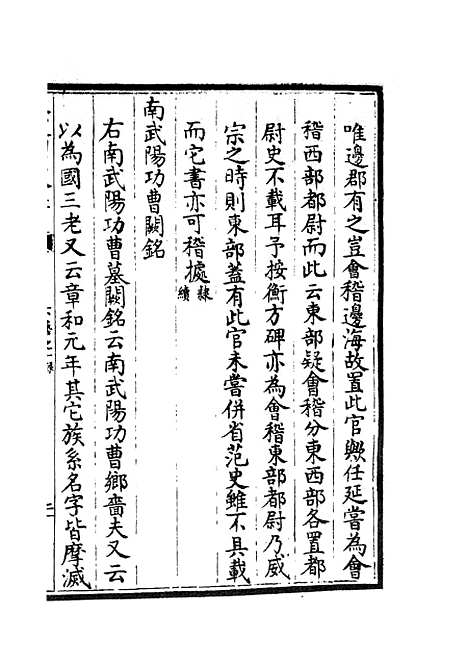 唯邊郡有之豈會稽邊海故置此官歟任延嘗為會
稽西部都尉而此云東部疑會稽分東西部各置都
尉史不載耳予按衡方碑亦為會稽東部都尉乃威
宗之時則東部蓋有此官未嘗併省范史雖不具載
而它書亦可稽攄隸續
南武陽功曹闕銘
右南武陽功曹墓闕銘云南武陽功曹鄉嗇夫又云
以為國三老又云章和元年其它族系名字皆摩滅